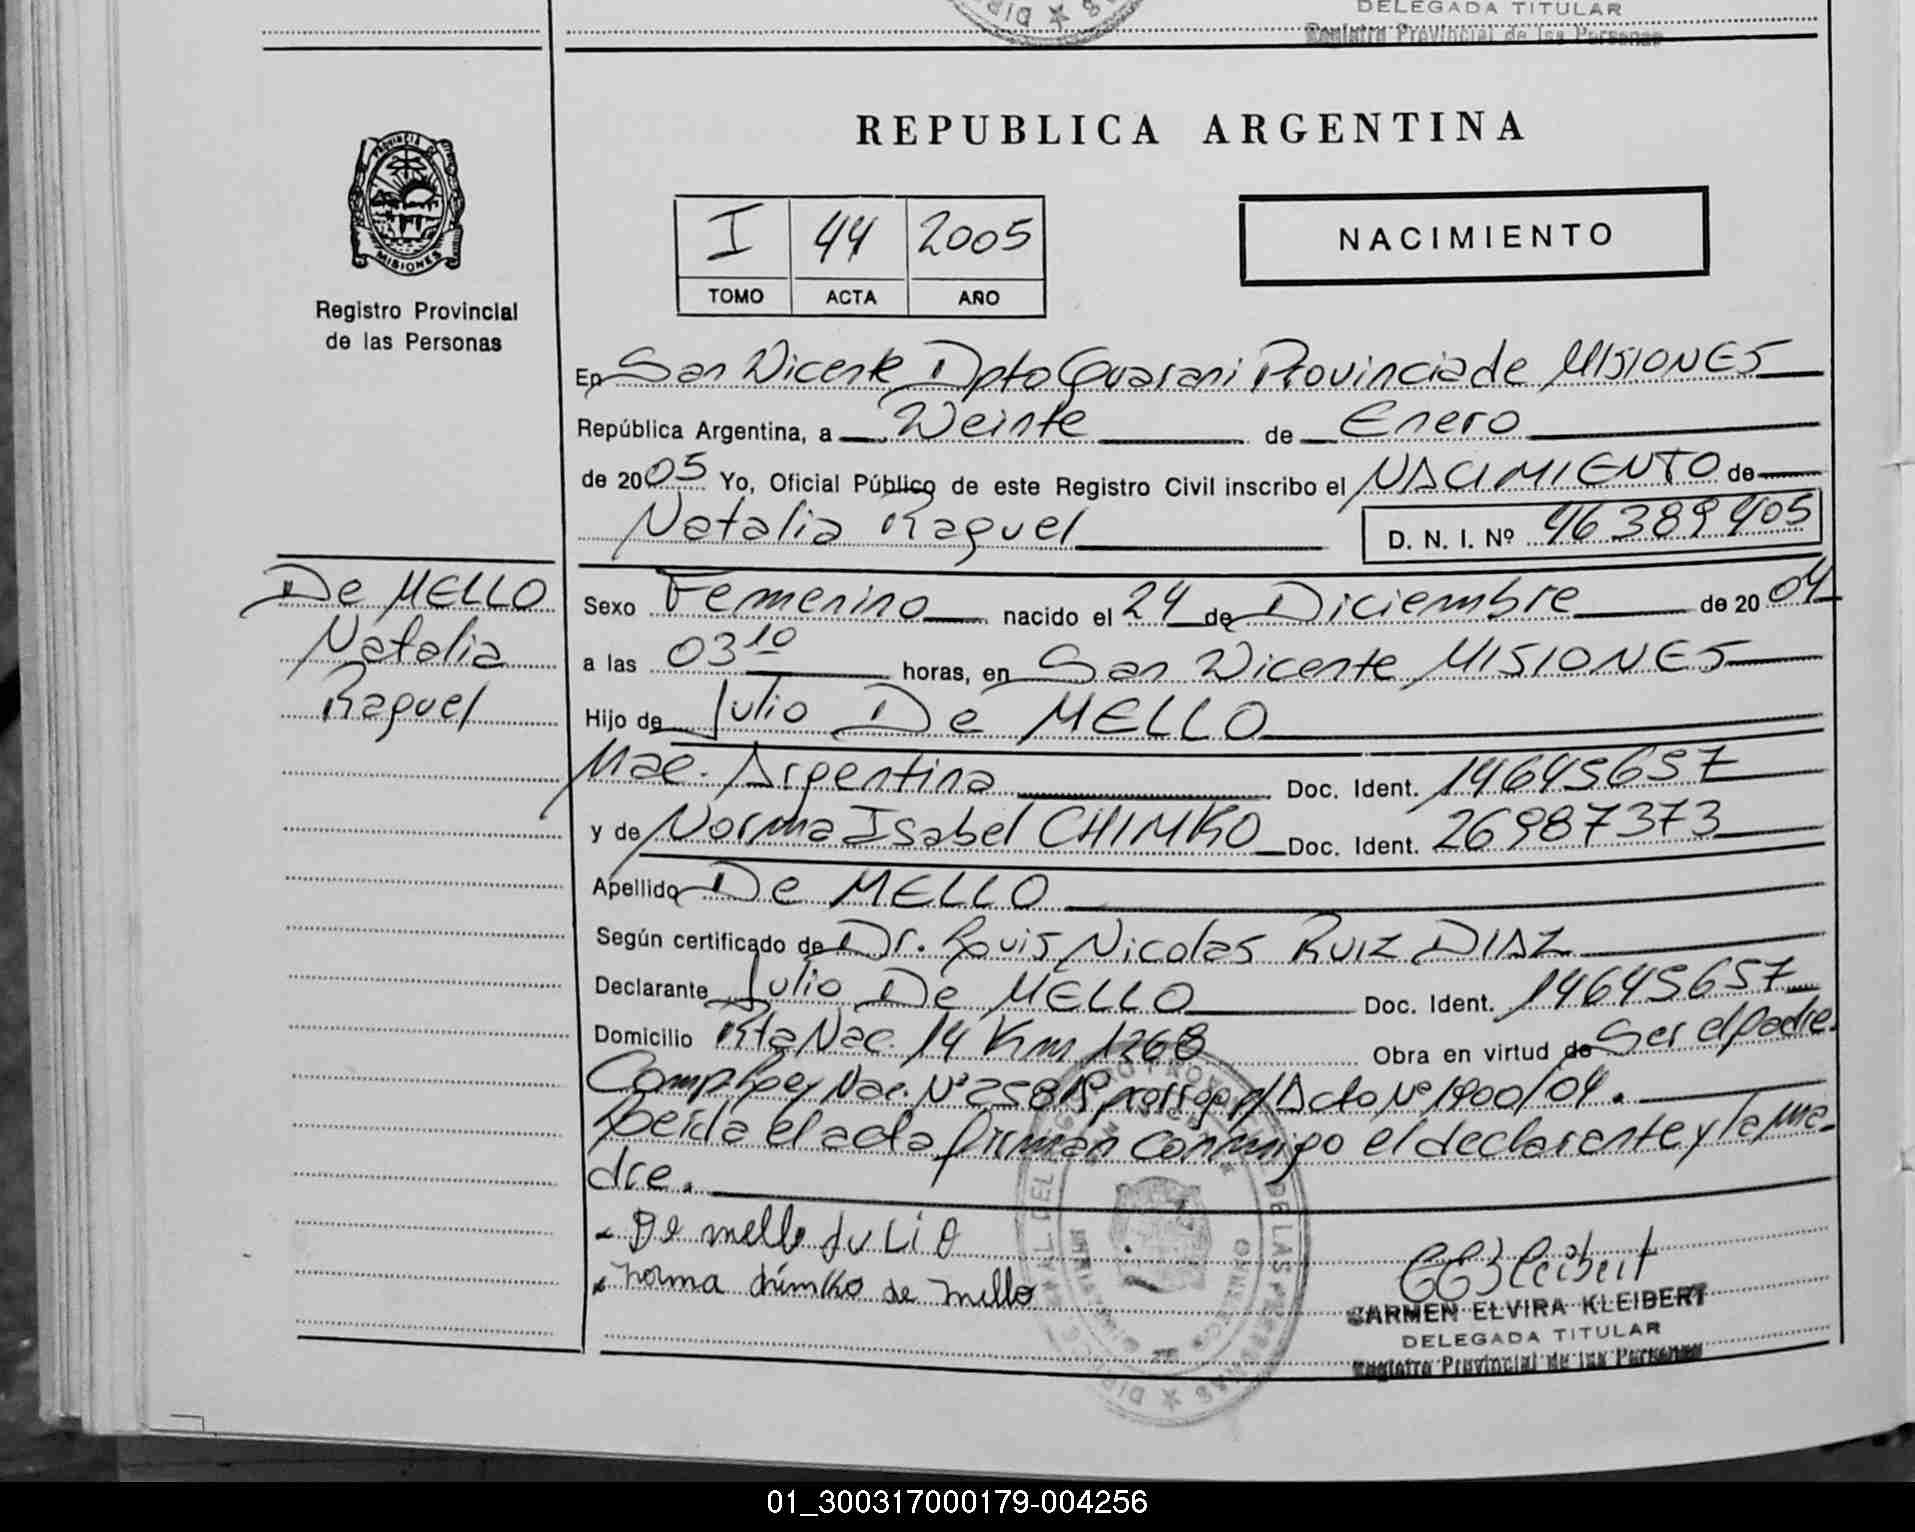 DELEGADA TITULAR
Registro Provincial de las Personas
PROVINCIA DE
MISIONES
Registro Provincial
de las Personas
REPUBLICA ARGENTINA
I 44 2005
TOMO ACTA AÑO
NACIMIENTO
En San Vicente Dpto Guarani Provincia de MISIONES
República Argentina, a Veinte de Enero
de 2005 Yo, Oficial Público de este Registro Civil inscribo el NACIMIENTO de
Natalia Raquel D. N. I. Nº 46389405
De MELLO
Natalia
Raquel
Sexo Femenino nacido el 24 de Diciembre de 2004
a las 03 10 horas, en San Vicente MISIONES
Hijo de Julio De MELLO
Nac. Argentina Doc. Ident. 14645657
y de Norma Isabel CHIMKO Doc. Ident. 26987373
Apellido De MELLO
Según certificado de Dr. Louis Nicolas RUIZ DIAZ
Declarante Julio De MELLO Doc. Ident. 14645657
Domicilio Rta Nac. 14 Km 1268 Obra en virtud de Ser el padre.
Comp Ley Nac. Nº 25819 prorrog p/ Dcto Nº 1900/04.
Leida el acta firman conmigo el declarante y la ma-
dre.
De mello JULIO
norma chimko de mello
CARMEN ELVIRA KLEIBERT
DELEGADA TITULAR
Registro Provincial de las Personas
01_300317000179-004256